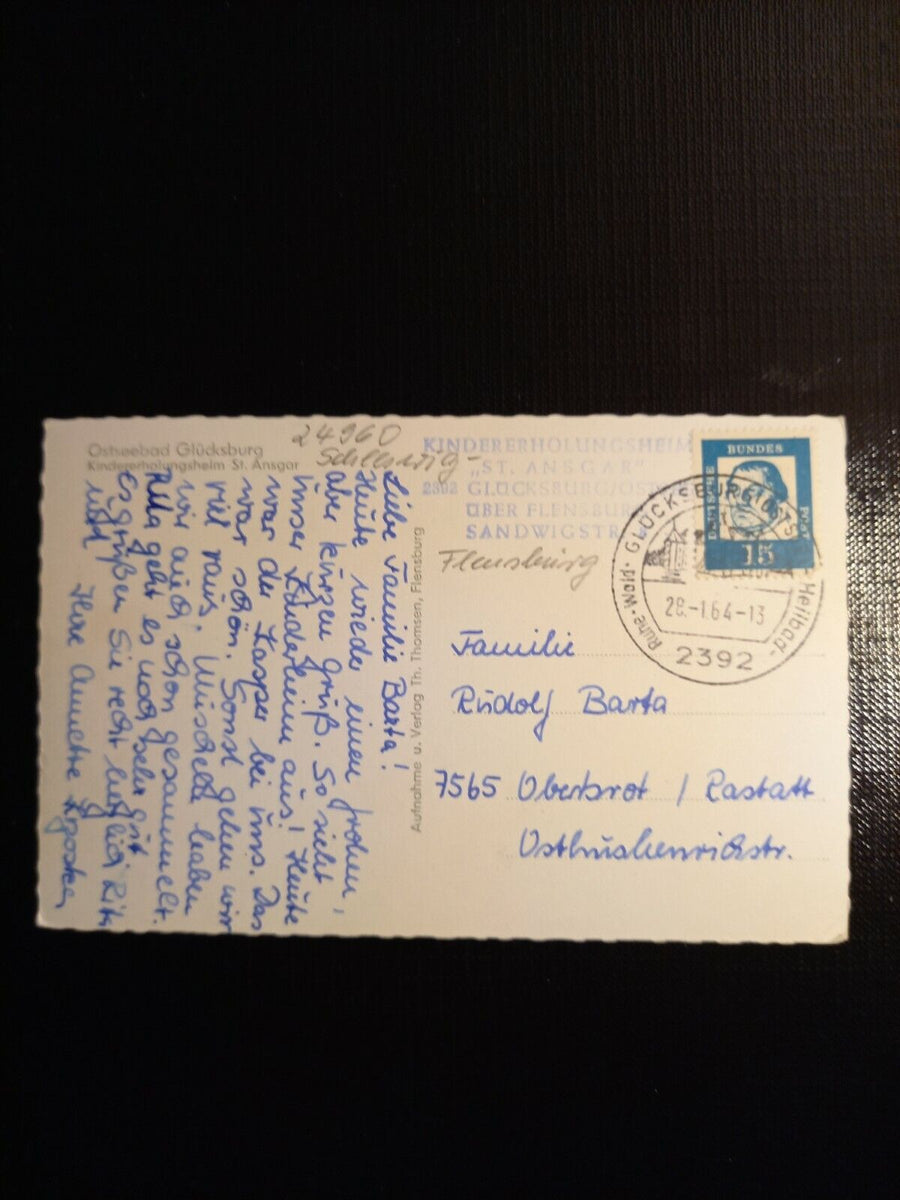 Ostseebad Glücksburg
Kindererholungsheim St. Ansgar
24960
Schleswig-
Flensburg
KINDERERHOLUNGSHEIM
„ST. ANSGAR“
2392 GLÜCKSBURG/OSTS
ÜBER FLENSBURG
SANDWIGSTR
DEUTSCHE
BUNDES
POST
15
GLÜCKSBURG (OSTS
Heilbad-
Ruhe-Wald
28.-1.64-13
2392
Liebe Familie Barta!
Heute wieder einen frohen,
aber kurzen Gruß. So sieht
unser Kinderheim aus! Heute
war der Kasper bei uns. Das
war schön. Sonst gehen wir
viel raus, Muscheln haben
wir auch schon gesammelt.
Rita geht es noch sehr gut
Es grüßen Sie recht herzlich Rita
und
Ihre Annette
Aufnahme u. Verlag Th. Thomsen, Flensburg
Familie
Rudolf Barta
7565 Obertsrot / Rastatt